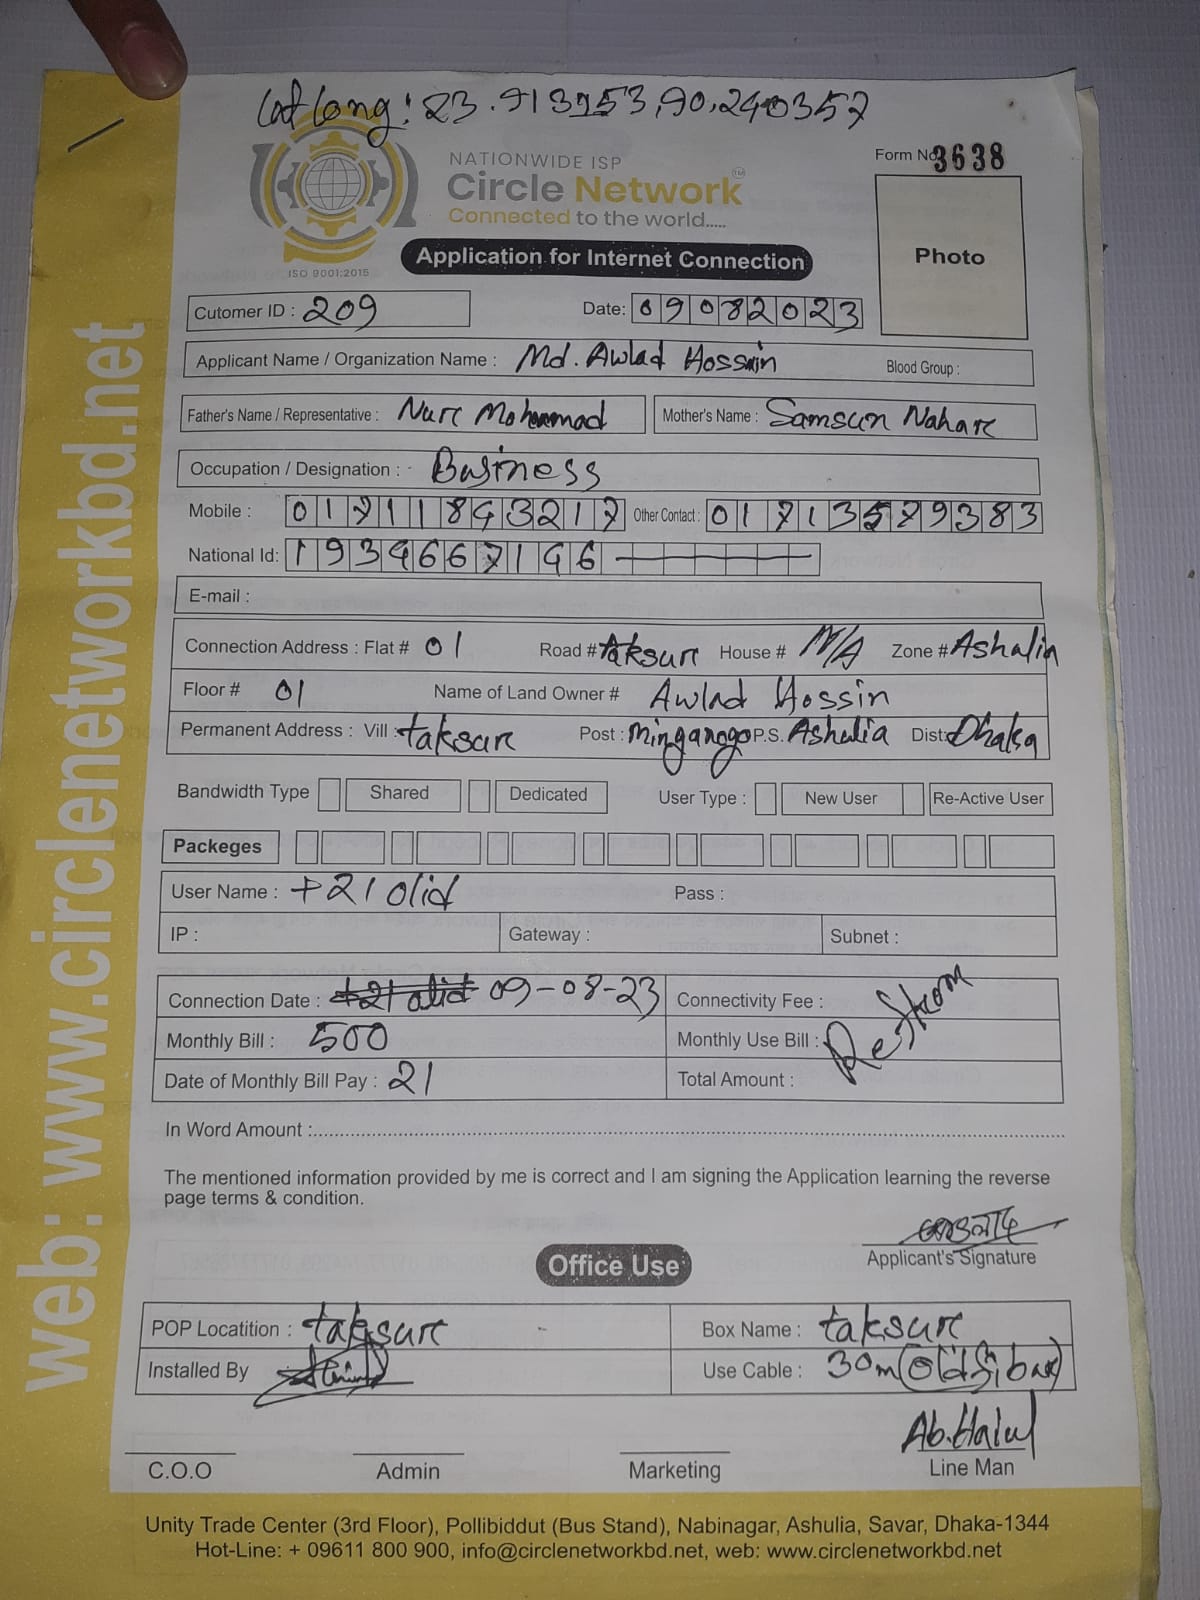 Lat Long: 23.913953,90.240357
NATIONWIDE ISP
Circle Network TM
Connected to the world.....
ISO 9001:2015
Form No. 3638
Photo
Application for Internet Connection
Cutomer ID : 209 Date: 09082023
Applicant Name / Organization Name : Md. Awlad Hossain Blood Group :
Father's Name / Representative : Nure Mohammad Mother's Name : Samsun Nahare
Occupation / Designation : - Business
Mobile : 01711893217 Other Contact : 01713579383
National Id: 1939667196
E-mail :
Connection Address : Flat # 01 Road # taksure House # N/A Zone # Ashalia
Floor # 01 Name of Land Owner # Awlad Hossin
Permanent Address : Vill : taksure Post : P.S. Ashulia Dist: Dhaka
Bandwidth Type Shared Dedicated User Type : New User Re-Active User
Packeges
User Name : t21 olid Pass :
IP : Gateway : Subnet :
Connection Date : t21 olid 09-08-23 Connectivity Fee :
Monthly Bill : 500 Monthly Use Bill :
Date of Monthly Bill Pay : 21 Total Amount :
In Word Amount :
The mentioned information provided by me is correct and I am signing the Application learning the reverse
page terms & condition.
Applicant's Signature
Office Use
POP Locatition : taksure Box Name : taksure
Installed By Use Cable : 30m (old fibar)
Ab.Halul
C.O.O Admin Marketing Line Man
Unity Trade Center (3rd Floor), Pollibiddut (Bus Stand), Nabinagar, Ashulia, Savar, Dhaka-1344
Hot-Line: + 09611 800 900, info@circlenetworkbd.net, web: www.circlenetworkbd.net
web: www.circlenetworkbd.net